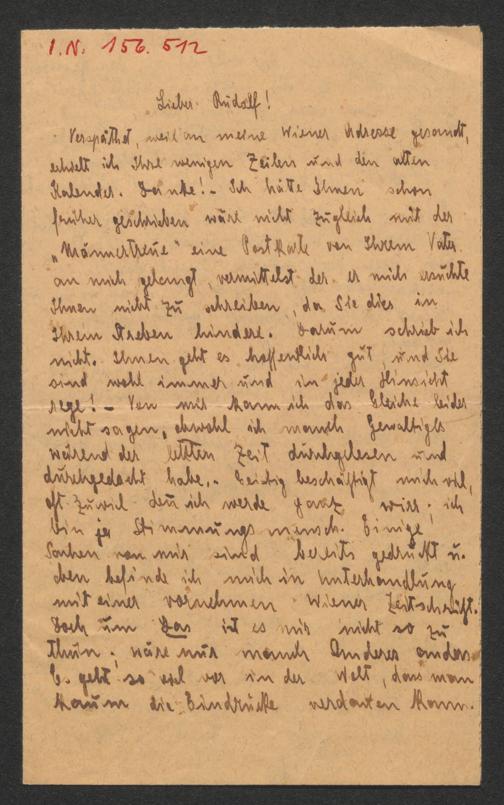 I.N. 156.512
Lieber Rudolf!
Verspäthet, weil an meine Wiener Adresse gesandt,
erhielt ich Ihre wenigen Zeilen und den alten
Kalender. Danke! - Ich hätte Ihnen schon
früher geschrieben wäre nicht zugleich mit der
„Männertreue" eine Postkarte von Ihrem Vater
an mich gelangt, vermittelst der er mich ersuchte
Ihnen nicht zu schreiben, da Sie dies in
Ihrem Streben hindere. Darum schrieb ich
nicht. Ihnen geht es hoffentlich gut, und Sie
sind wohl immer und in jeder Hinsicht
rege! - Von mir kann ich das Gleiche leider
nicht sagen, obwohl ich manch Gewaltiges
während der letzten Zeit durchgelesen und
durchgedacht habe. Geistig beschäftigt mich viel,
oft zuviel den ich werde ganz wirr; ich
bin ja Stimmungsmensch. Einige
Sachen von mir sind bereits gedruckt u.
eben befinde ich mich in Unterhandlung
mit einer vornehmen Wiener Zeitschrift.
Doch um Das ist es mir nicht so zu
thun; wäre nur manch Anderes anders
Es geht so viel vor in der Welt, dass man
kaum die Eindrücke verdauen kann.